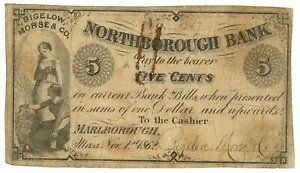 BIGELOW,
MORSE & CO.
NORTHBOROUGH BANK
Pay to the bearer
5 FIVE CENTS 5
in current Bank Bills, when presented
in sums of one Dollar and upwards.
To the Cashier.
MARLBOROUGH,
Mass. Nov. 1st 1862. Bigelow Morse & Co